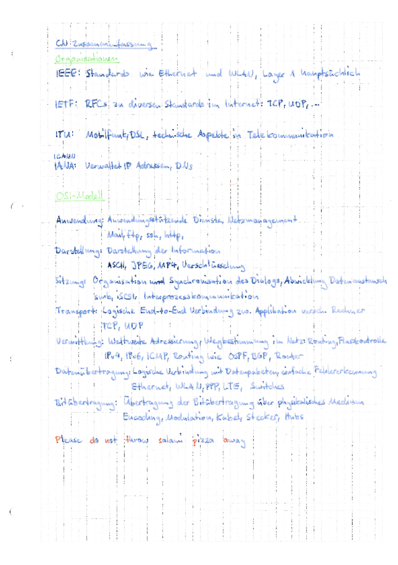 CN Zusammenfassung
Organisationen
IEEE: Standards wie Ethernet und WLAN, Layer 1 hauptsächlich
IETF: RFCs, zu diversen Standards im Internet: TCP, UDP, ...
ITU: Mobilfunk, DSL, technische Aspekte in Telekommunikation
ICANN
IANA: Verwaltet IP Adressen, DNS
OSI-Modell
Anwendung: Anwendungsstützende Dienste, Netzmanagement
Mail, ftp, ssh, http,
Darstellung: Darstellung der Information
ASCII, JPEG, MP4, Verschlüsselung
Sitzung: Organisation und Synchronisation des Dialogs, Abwicklung Datenaustausch
smb, iSCSI, Interprozesskommunikation
Transport: Logische End-to-End Verbindung zw. Applikation versch. Rechner
TCP, UDP
Vermittlung: Weltweite Adressierung, Wegbestimmung im Netz Routing, Flusskontrolle
IPv4, IPv6, ICMP, Routing wie OSPF, BGP, Router
Datenübertragung: Logische Verbindung mit Datenpaketen, einfache Fehlererkennung
Ethernet, WLAN, PPP, LTE, Switches
Bitübertragung: Übertragung der Bitübertragung über physikalisches Medium
Encoding, Modulation, Kabel, Stecker, Hubs
Please do not throw salami pizza away